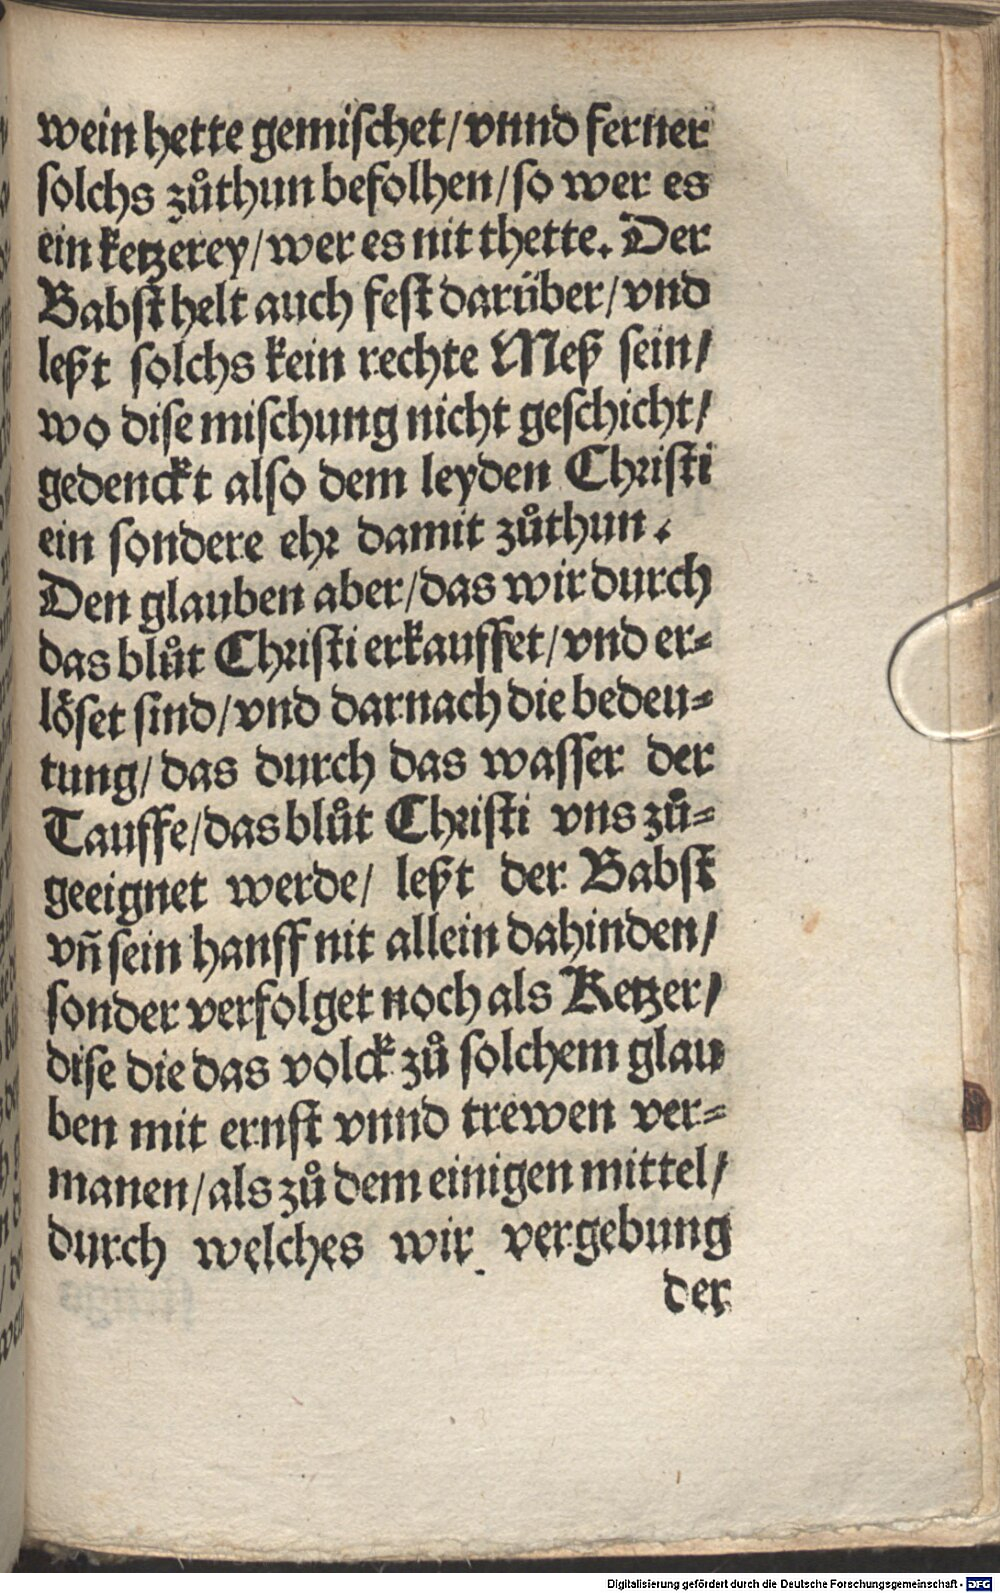 wein hette gemischet/ vnnd ferner
solchs zůthun befolhen/ so wer es
ein ketzerey/ wer es nit thette. Der
Babst helt auch fest darüber/ vnd
leßt solchs kein rechte Meß sein/
wo dise mischung nicht geschicht/
gedenckt also dem leyden Christi
ein sondere ehr damit zůthun.
Den glauben aber/ das wir durch
das blůt Christi erkauffet/ vnd er=
löset sind/ vnd darnach die bedeu=
tung/ das durch das wasser der
Tauffe/ das blůt Christi vns zů=
geeignet werde/ leßt der Babst
vñ sein hauff nit allein dahinden/
sonder verfolget noch als Ketzer/
dise die das volck zů solchem glau
ben mit ernst vnnd trewen ver=
manen/ als zů dem einigen mittel/
durch welches wir vergebung
der
Digitalisierung gefördert durch die Deutsche Forschungsgemeinschaft - DFG